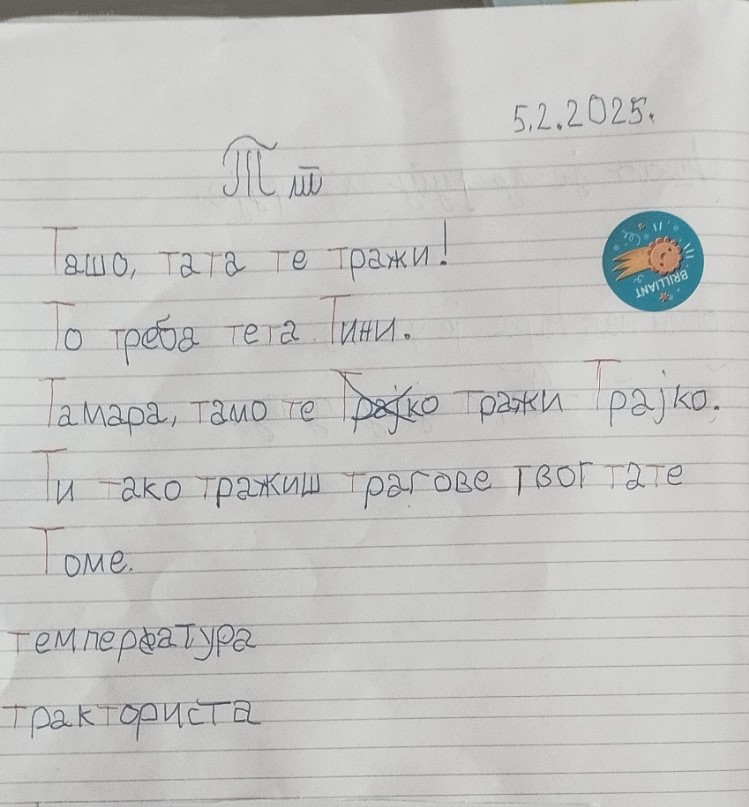 5.2.2025.
Т т
Ташо, тата те тражи!
То треба тета Тини.
Тамара, тамо те Трајко тражи Трајко.
Ти тако тражиш трагове твог тате
Томе.
температура
тракториста
BRILLIANT